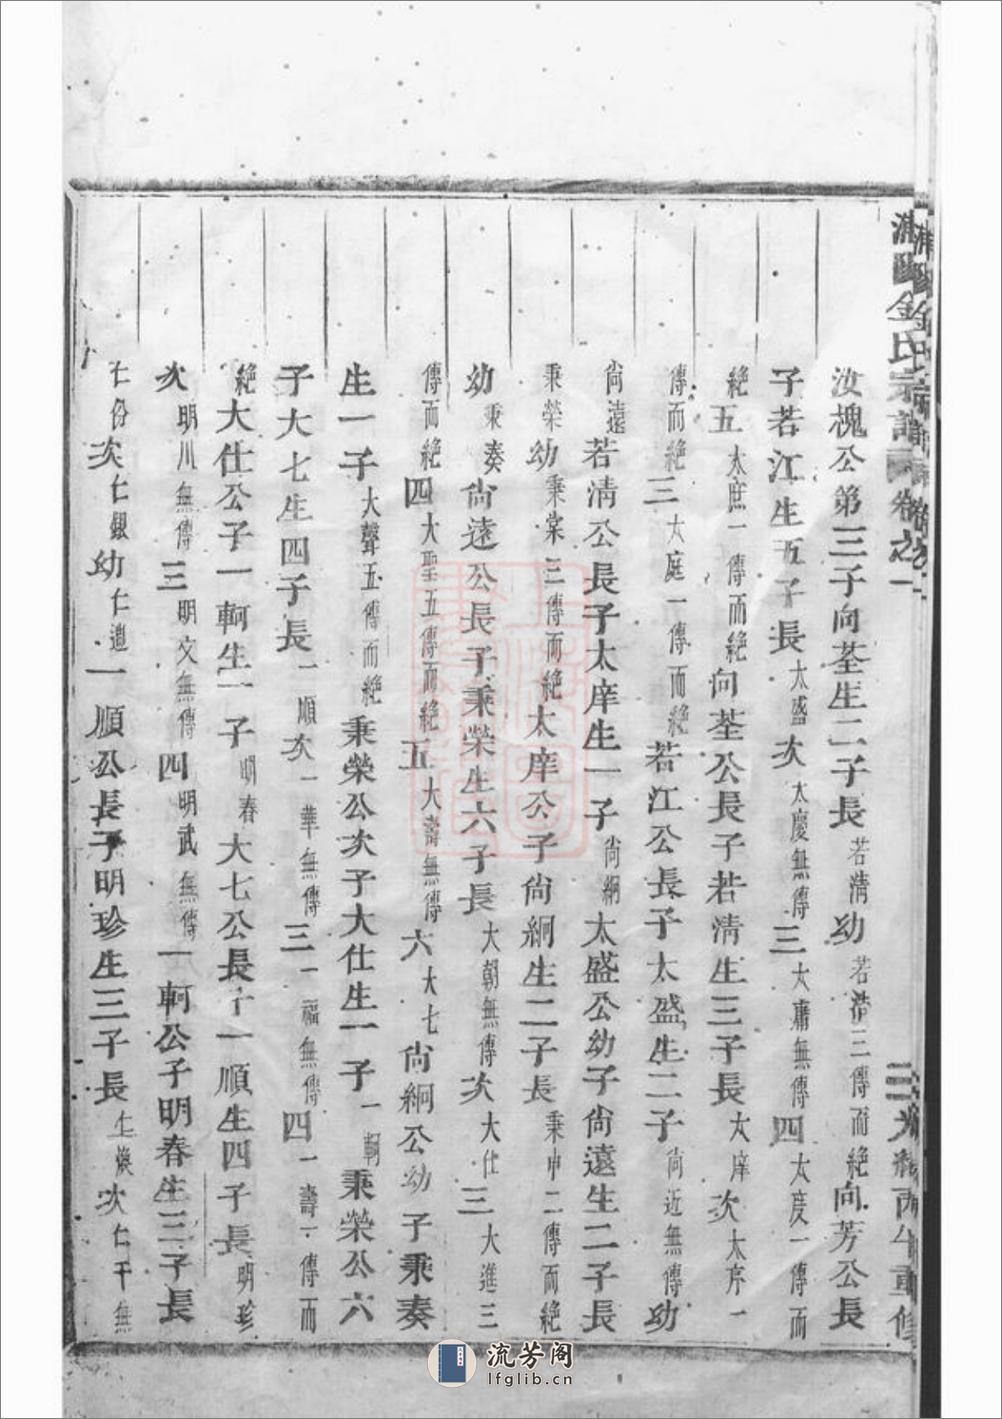 金氏宗譜 卷之一 三 光緒丙午重修
汝槐公第三子向荃生二子長若清幼若浩三傳而絕向芳公長
子若江生五子長太盛次太慶無傳三太庸無傳四太度一傳而
絕五太庶一傳而絕向荃公長子若清生三子長太庠次太序一
傳而絕三太庭一傳而絕若江公長子太盛生二子尚近無傳幼
尚遠若清公長子太庠生一子尚絅太盛公幼子尚遠生二子長
秉榮幼秉棠三傳而絕太庠公子尚絅生二子長秉申二傳而絕
幼秉奏尚遠公長子秉榮生六子長大朝無傳次大仕三大進三
傳而絕四大聖五傳而絕五大壽無傳六大七尚絅公幼子秉奏
生一子大聲五傳而絕秉榮公次子大仕生一子一軻秉榮公六
子大七生四子長一順次一華無傳三一福無傳四一壽一傳而
絕大仕公子一軻生一子明春大七公長子一順生四子長明珍
次明川無傳三明文無傳四明武無傳一軻公子明春生三子長
仁份次仁銀幼仁遣一順公長子明珍生三子長仁煥次仁干無
流芳阁
lfglib.cn